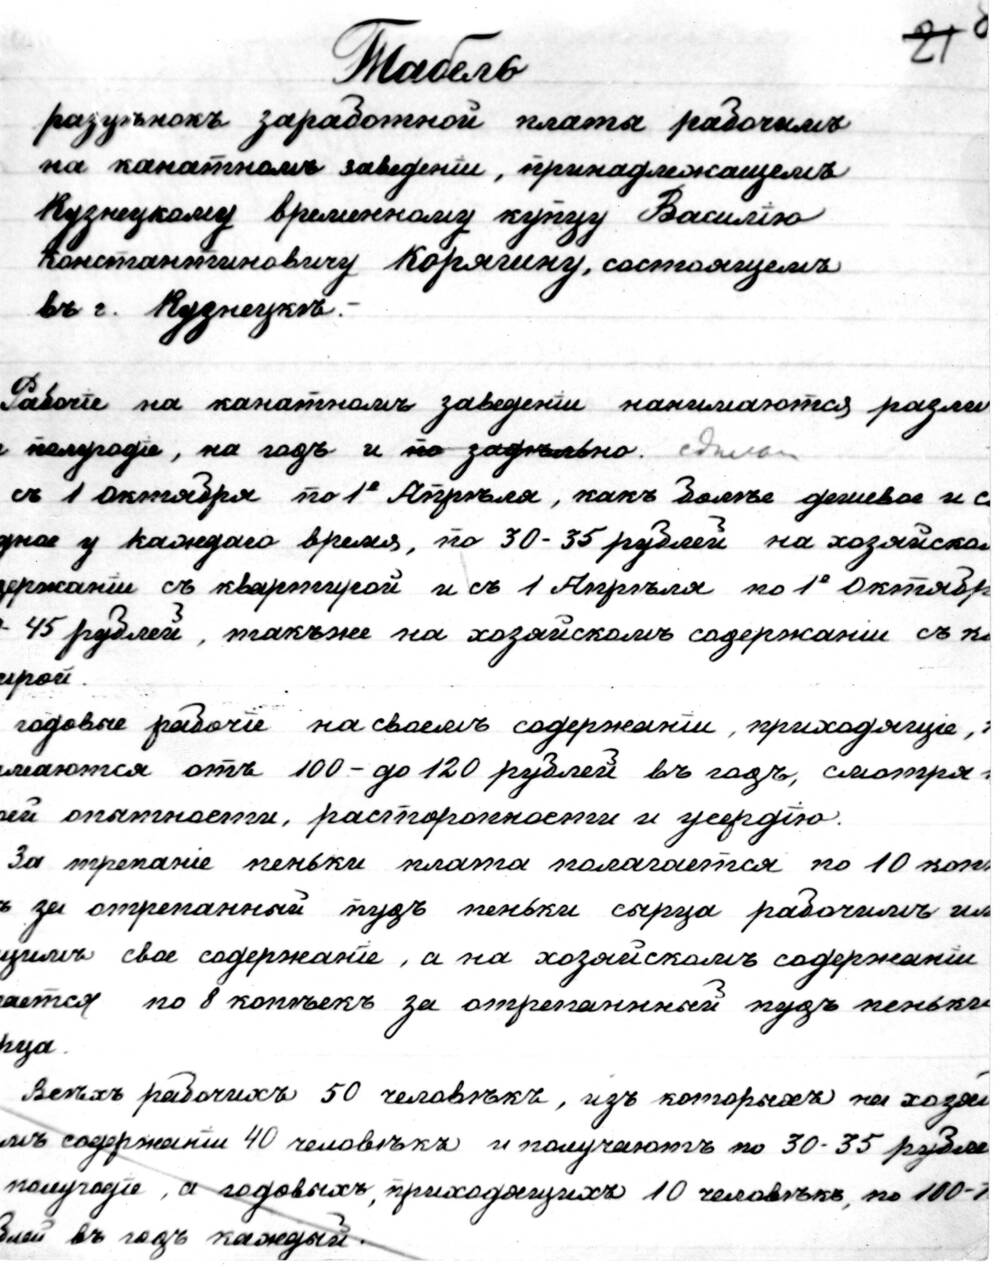 21
Табель
разцѣнокъ заработной платы рабочимъ
на канатномъ заведеніи, принадлежащемъ
Кузнецкому временному купцу Василію
Константиновичу Корягину, состоящемъ
въ г. Кузнецкѣ.-
Рабочіе на канатномъ заведеніи нанимаются разли
полугодіе, на годъ и по задѣльно.
съ 1 Октября по 1е Апрѣля, какъ болѣе дешевое и с
дное у каждаго время, по 30-35 рублей на хозяйском
держаніи съ квартирой и съ 1 Апрѣля по 1е Октябр
- 45 рублей, такъже на хозяйскомъ содержаніи съ к
ирой.
годовые рабочіе на своемъ содержаніи, приходящіе,
имаются отъ 100 - до 120 рублей въ годъ, смотря
оей опытности, расторопности и усердію.
За трепаніе пеньки плата полагается по 10 копѣ
ъ за отрепанный пудъ пеньки сырца рабочимъ им
щимъ свое содержаніе, а на хозяйскомъ содержаніи
ается по 8 копѣекъ за отрепанный пудъ пеньки
рца.
Всѣхъ рабочихъ 50 человѣкъ, изъ которыхъ на хозяй
омъ содержаніи 40 человѣкъ и получаютъ по 30-35 рубле
полугодіе, а годовыхъ, приходящихъ 10 человѣкъ, по 100-1
блей въ годъ каждый.